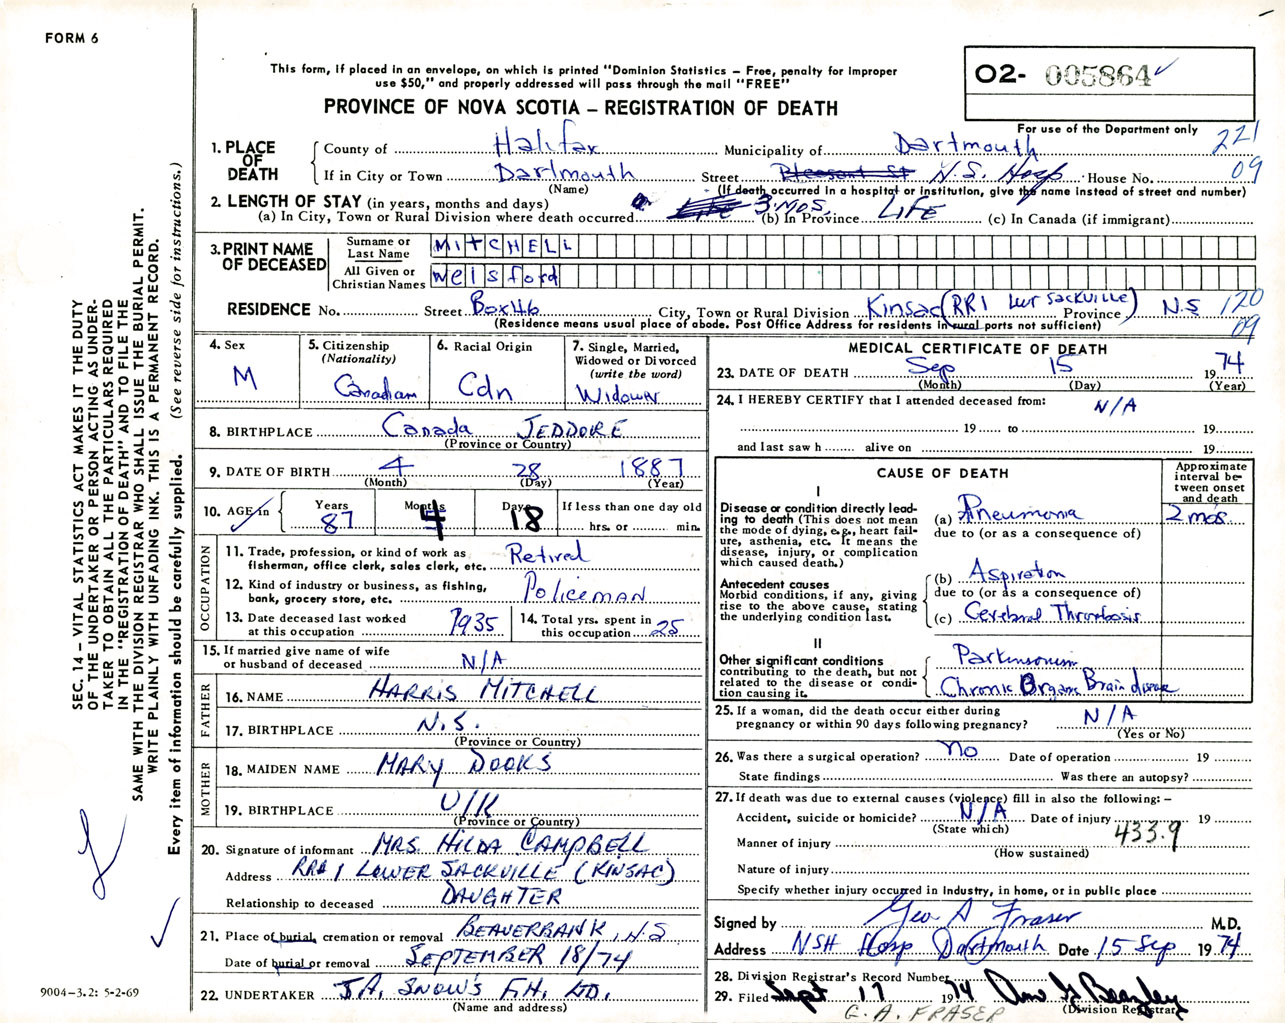 FORM 6
This form, if placed in an envelope, on which is printed "Dominion Statistics – Free, penalty for improper
use $50," and properly addressed will pass through the mail "FREE"
PROVINCE OF NOVA SCOTIA – REGISTRATION OF DEATH
02- 005864
For use of the Department only
221
09
1. PLACE OF DEATH
County of Halifax Municipality of Dartmouth
If in City or Town Dartmouth Street Pleasant St N.S. Hosp House No.
(Name) (If death occurred in a hospital or institution, give the name instead of street and number)
2. LENGTH OF STAY (in years, months and days)
(a) In City, Town or Rural Division where death occurred 3 mos. (b) In Province LIFE (c) In Canada (if immigrant)
3. PRINT NAME OF DECEASED
Surname or Last Name MITCHELL
All Given or Christian Names Welsford
RESIDENCE No. Street Box 46 City, Town or Rural Division Kinsac (RR1 Lwr Sackville) Province N.S 120
09
(Residence means usual place of abode. Post Office Address for residents in rural parts not sufficient)
4. Sex
M
5. Citizenship
(Nationality)
Canadian
6. Racial Origin
Cdn
7. Single, Married,
Widowed or Divorced
(write the word)
Widower
8. BIRTHPLACE Canada JEDDORE
(Province or Country)
9. DATE OF BIRTH 4 28 1887
(Month) (Day) (Year)
10. AGE in Years 87 Months 4 Days 18 If less than one day old
hrs. or min.
OCCUPATION
11. Trade, profession, or kind of work as
fisherman, office clerk, sales clerk, etc. Retired
12. Kind of industry or business, as fishing,
bank, grocery store, etc. Policeman
13. Date deceased last worked
at this occupation 1935
14. Total yrs. spent in
this occupation 25
15. If married give name of wife
or husband of deceased N/A
FATHER
16. NAME HARRIS MITCHELL
17. BIRTHPLACE N.S.
(Province or Country)
MOTHER
18. MAIDEN NAME MARY DOOKS
19. BIRTHPLACE U/K
(Province or Country)
20. Signature of informant MRS HILDA CAMPBELL
Address RR#1 LOWER SACKVILLE (KINSAC)
Relationship to deceased DAUGHTER
21. Place of burial, cremation or removal BEAVERBANK, N.S
Date of burial or removal SEPTEMBER 18/74
22. UNDERTAKER J.A. SNOW'S F.H. LTD.
(Name and address)
MEDICAL CERTIFICATE OF DEATH
23. DATE OF DEATH Sep 15 1974
(Month) (Day) (Year)
24. I HEREBY CERTIFY that I attended deceased from: N/A
19 to 19
and last saw h alive on 19
CAUSE OF DEATH
Approximate
interval be-
tween onset
and death
I
Disease or condition directly lead-
ing to death (This does not mean
the mode of dying, e.g., heart fail-
ure, asthenia, etc. It means the
disease, injury, or complication
which caused death.)
(a) Pneumonia 2 mos
due to (or as a consequence of)
Antecedent causes
Morbid conditions, if any, giving
rise to the above cause, stating
the underlying condition last.
(b) Aspiration
due to (or as a consequence of)
(c) Cerebral Thrombosis
II
Other significant conditions
contributing to the death, but not
related to the disease or condi-
tion causing it.
Parkinsonism
Chronic Organic Brain disease
25. If a woman, did the death occur either during
pregnancy or within 90 days following pregnancy? N/A
(Yes or No)
26. Was there a surgical operation? No Date of operation 19
State findings Was there an autopsy?
27. If death was due to external causes (violence) fill in also the following: –
Accident, suicide or homicide? N/A Date of injury 19
(State which) 433.9
Manner of injury
(How sustained)
Nature of injury
Specify whether injury occurred in Industry, in home, or in public place
Signed by Geo A Fraser M.D.
Address NSH Hosp Dartmouth Date 15 Sep 1974
28. Division Registrar's Record Number
29. Filed Sept 17 1974
(Division Registrar)
G. A. FRASER
SEC. 14 – VITAL STATISTICS ACT MAKES IT THE DUTY
OF THE UNDERTAKER OR PERSON ACTING AS UNDER-
TAKER TO OBTAIN ALL THE PARTICULARS REQUIRED
IN THE "REGISTRATION OF DEATH" AND TO FILE THE
SAME WITH THE DIVISION REGISTRAR WHO SHALL ISSUE THE BURIAL PERMIT.
WRITE PLAINLY WITH UNFADING INK. THIS IS A PERMANENT RECORD.
Every item of information should be carefully supplied. (See reverse side for instructions.)
9004-3.2: 5-2-69